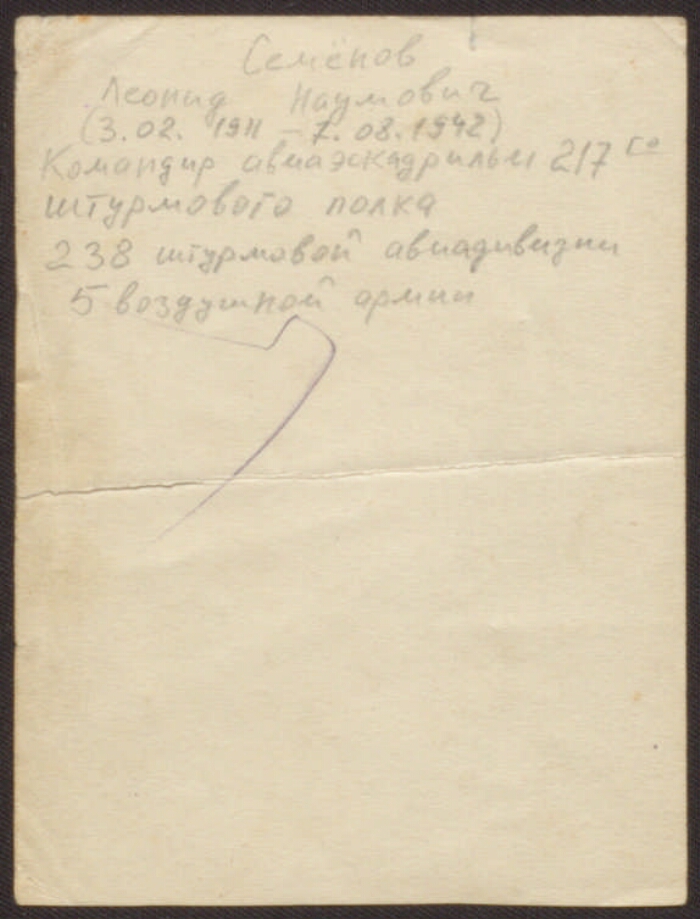 Семёнов
Леонид Наумович
(3.02. 1911 – 7.08.1942)
Командир авиаэскадрильи 217 го
штурмового полка
238 штурмовой авиадивизии
5 воздушной армии